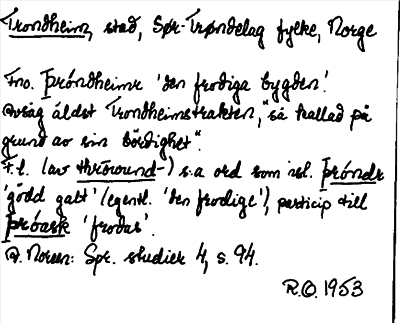 Trondheim, stad, Sør-Trøndelag fylke, Norge
Fno. Þróndheimr 'den frodiga bygden'.
Avsåg äldst Trondheimstrakten, "så kallad på
grund av sin bördighet".
F.l. (av thrōwund-) s.a ord som isl. Þróndr
'gödd galt' (egentl. 'den frodige'), particip till
þróask 'frodas'.
A. Noreen: Spr. studier 4, s. 94.
R.O. 1953